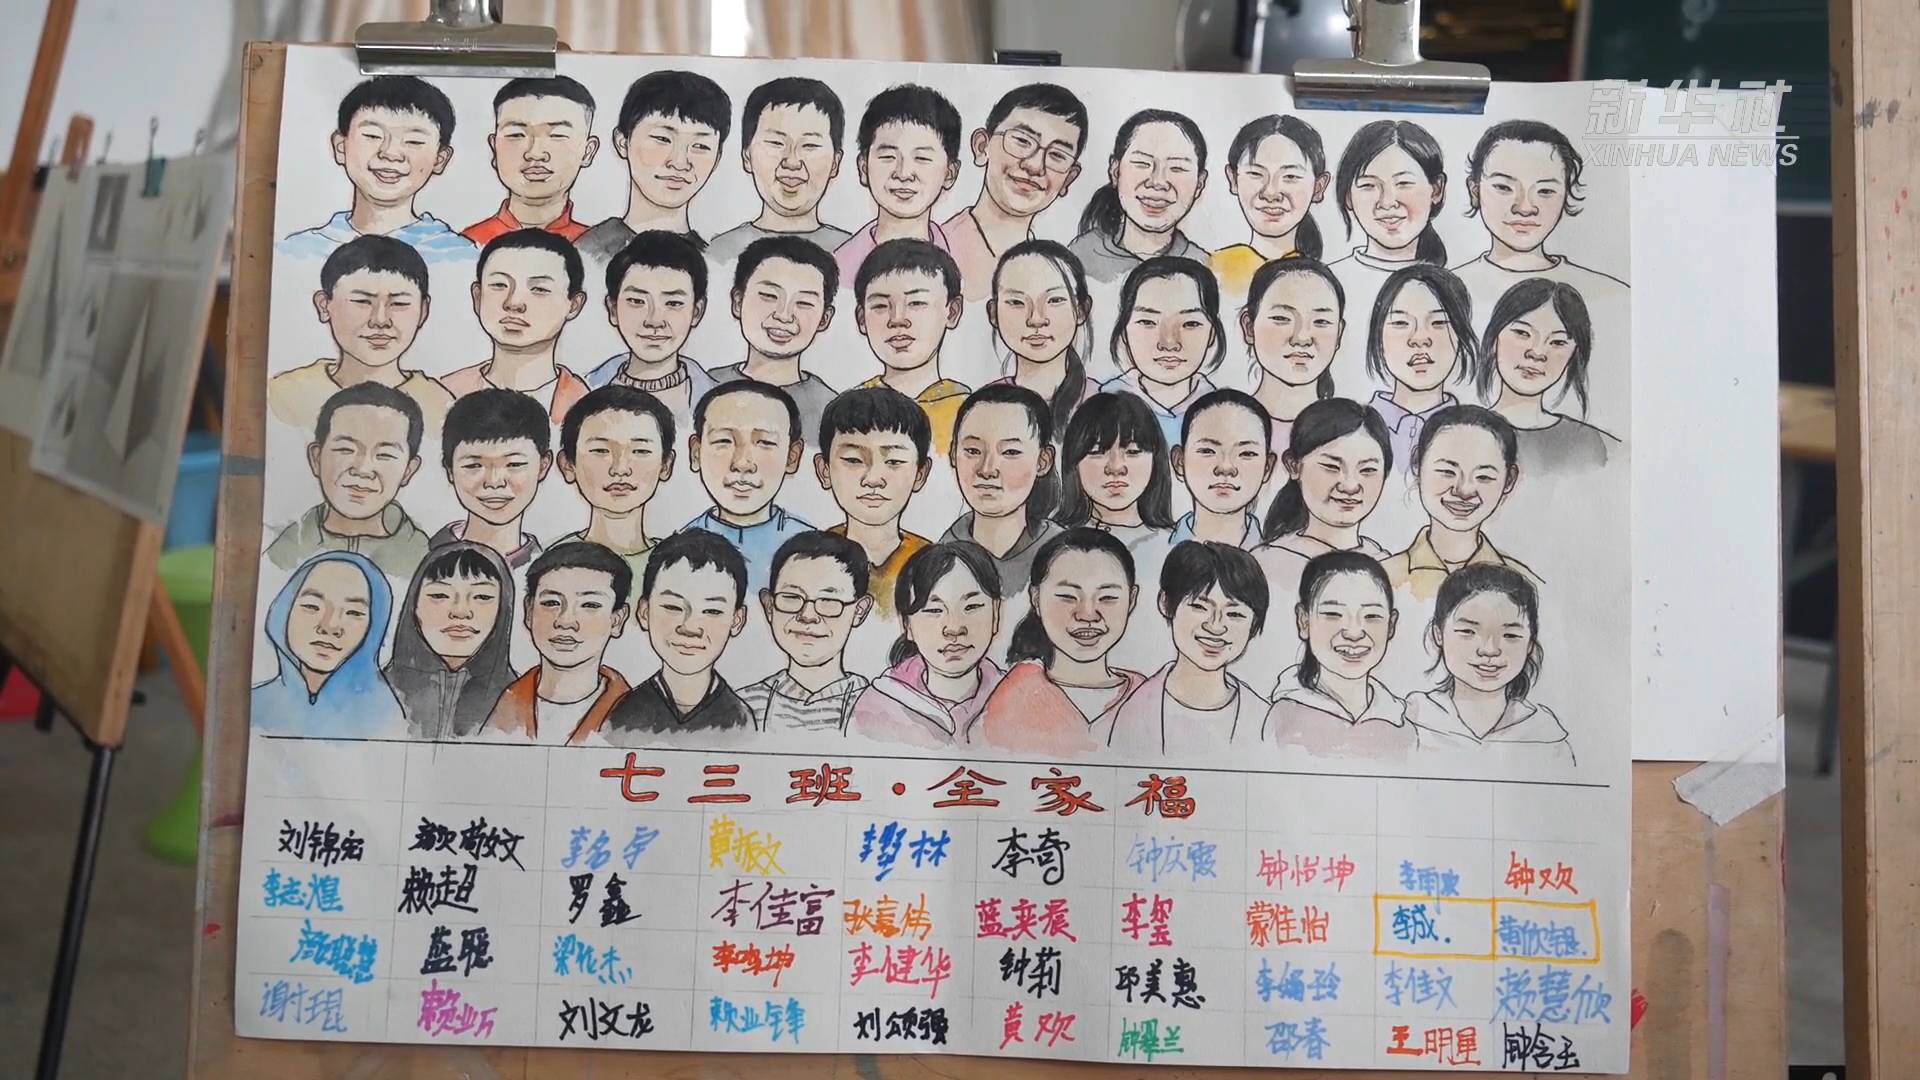 新华社
XINHUA NEWS
七三班·全家福
刘锦宏 李名宇 黄振文 李林 李奇 钟庆霞 钟怡坤 李雨欢 钟欢
李志煌 赖超 罗鑫 李佳富 张嘉伟 蓝奕晨 李玺 蒙佳怡 李成. 黄欣银.
颜聪慧 蓝聪 梁化杰 李鸣坤 李健华 钟莉 邱美惠 李嫣玲 李佳文 赖慧欣
谢琨 赖业万 刘文龙 赖业锋 刘颂强 黄欢 钟翠兰 邵春 王明星 钟含玉